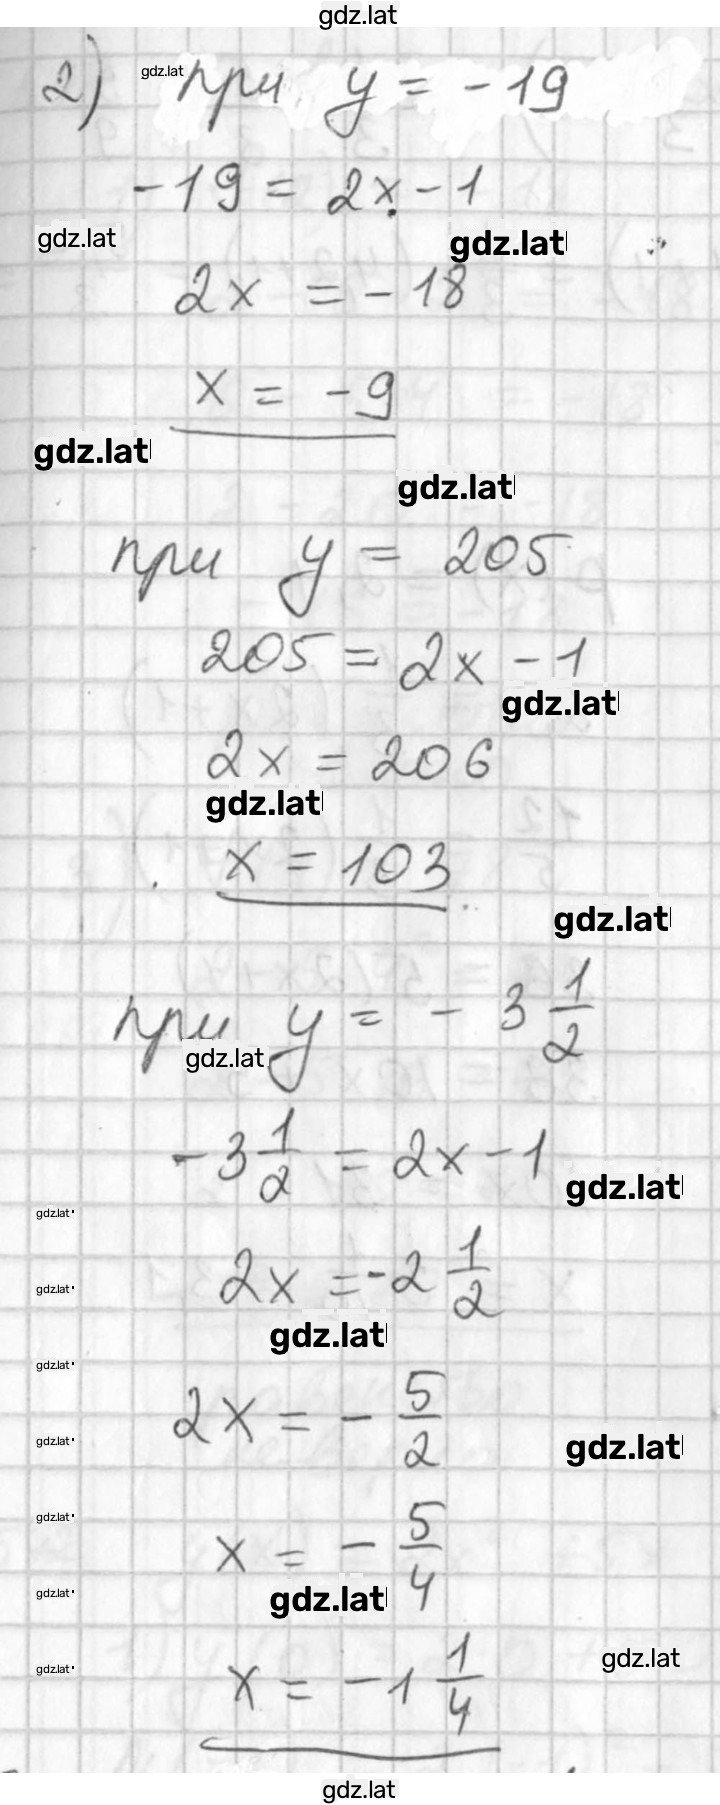 gdz.lat
2) gdz.lat при y = -19
-19 = 2x - 1
gdz.lat gdz.lat
2x = -18
x = -9
gdz.lat
gdz.lat
при y = 205
205 = 2x - 1
gdz.lat
2x = 206
gdz.lat
x = 103
gdz.lat
при y = - 3 1/2
gdz.lat
-3 1/2 = 2x - 1
gdz.lat
gdz.lat
2x = -2 1/2
gdz.lat
gdz.lat
gdz.lat
2x = - 5/2
gdz.lat gdz.lat
gdz.lat
x = - 5/4
gdz.lat gdz.lat
gdz.lat
gdz.lat x = -1 1/4
gdz.lat